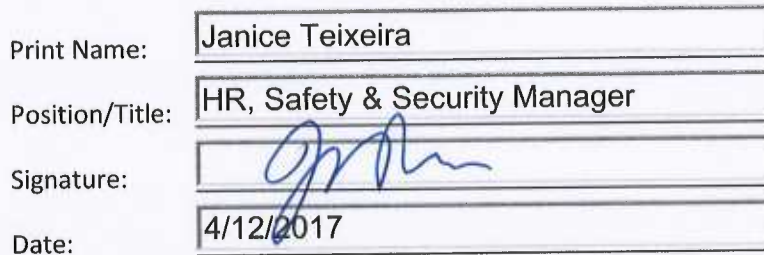 Print Name: Janice Teixeira
Position/Title: HR, Safety & Security Manager
Signature:
Date: 4/12/2017